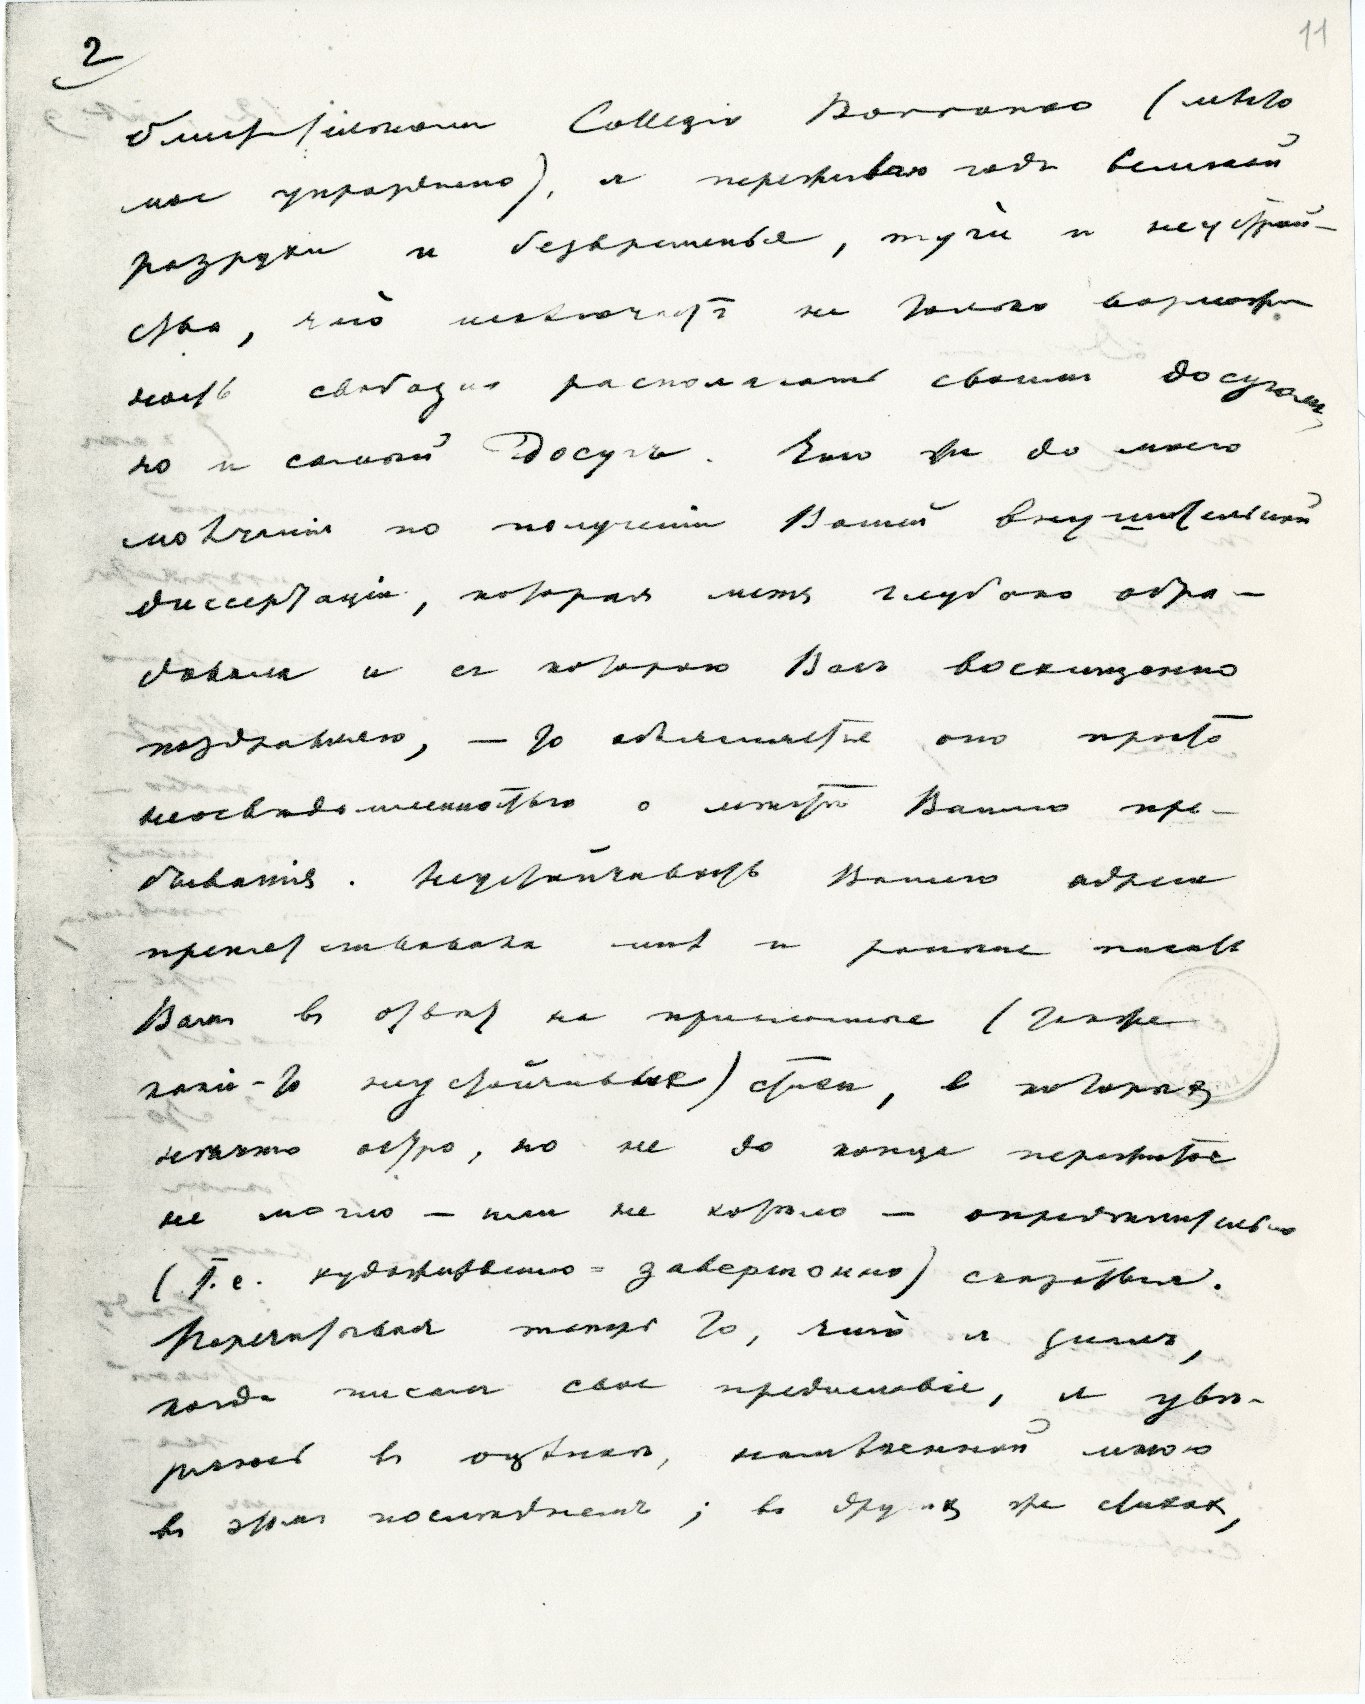 2
11
Collegio Borromeo (место
мое упразднено), и переживаю годы великой
разрухи и безвременья, туги и неустрой-
ства, что исключаетъ не только возмож-
ность свободно располагать своимъ досугомъ,
но и самый Досугъ. Что же до моего
молчанія по полученіи Вашей внушительной
диссертаціи, которая меня глубоко обра-
довала и съ которою Васъ восхищенно
поздравляю, — то объясняется оно просто
неосвѣдомленностью о мѣстѣ Вашего пре-
быванія. Неустойчивость Вашего адреса
препятствовала мнѣ и раньше писать
Вамъ въ отвѣтъ на присланные (также
какіе-то неустойчивые) стихи, в которыхъ
нечто остро, но не до конца пережитое
не могло — или не хотѣло — окончательно
(т.е. художественно-завершонно) сказаться.
Перечитывая теперь то, что я
когда писалъ свое предисловіе, я увѣ-
ряюсь въ оцѣнкѣ, намѣченной мною
въ этомъ послѣднемъ; въ другихъ же стихахъ,